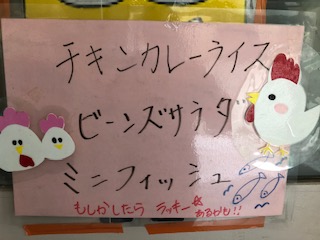 チキンカレーライス
ビーンズサラダ
ミニフィッシュ
もしかしたら ラッキー☆
あるかも!!